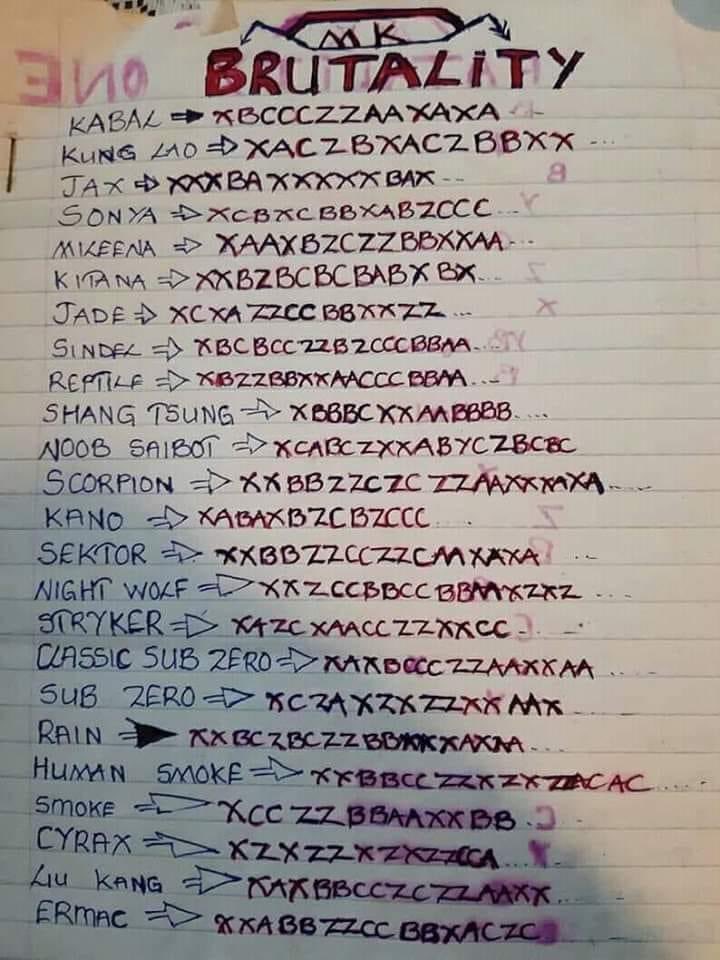 MK
BRUTALITY
ONE
KABAL → XBCCCZZAAXAXA
KUNG LAO ⇒ XACZBXACZBBXX ...
JAX ⇒ XXXBAXXXXXBAX --
SONYA ⇒ XCBXCBBXABZCCC...
MILEENA ⇒ XAAXBZCZZBBXXAA...
KITANA ⇒ XXBZBCBCBABXBX...
JADE ⇒ XCXAZZCCBBXXZZ ...
SINDEL ⇒ XBCBCCZZBZCCCBBAA...
REPTILE ⇒ XBZZBBXXAACCCBBAA...
SHANG TSUNG ⇒ XBBBCXXAABBBB....
NOOB SAIBOT ⇒ XCABCZXXABYCZBCBC
SCORPION ⇒ XXBBZZCZCZZAAXXXAXA.....
KANO ⇒ XABAXBZCBZCCC ....
SEKTOR ⇒ XXBBZZCCZZCAAXAXA ...
NIGHT WOLF ⇒ XXZCCBBCCBBAAXZXZ ...
STRYKER ⇒ XAZCXAACCZZXXCC - ...
CLASSIC SUB ZERO ⇒ XAXBCCCZZAAXXAA ....
SUB ZERO ⇒ XCZAXZXZZXXAAX
RAIN → XXBCZBCZZBB
HUMAN SMOKE ⇒ XXBBCCZZXZXZZACAC ......
SMOKE ⇒ XCCZZBBAAXXBB .
CYRAX ⇒ XZXZZXZXZZCCA...
LIU KANG ⇒ XAXBBCCZCZZAAXX...
ERMAC ⇒ XXABBZZCCBBXACZC